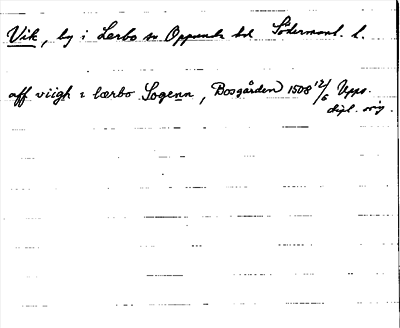 Vik, by i Lerbo sn Oppunda hd Södermanl. l.
aff viigh i lærbo Sogenn, Bosgården 1508 12/6 Upps.
dipl. orig.